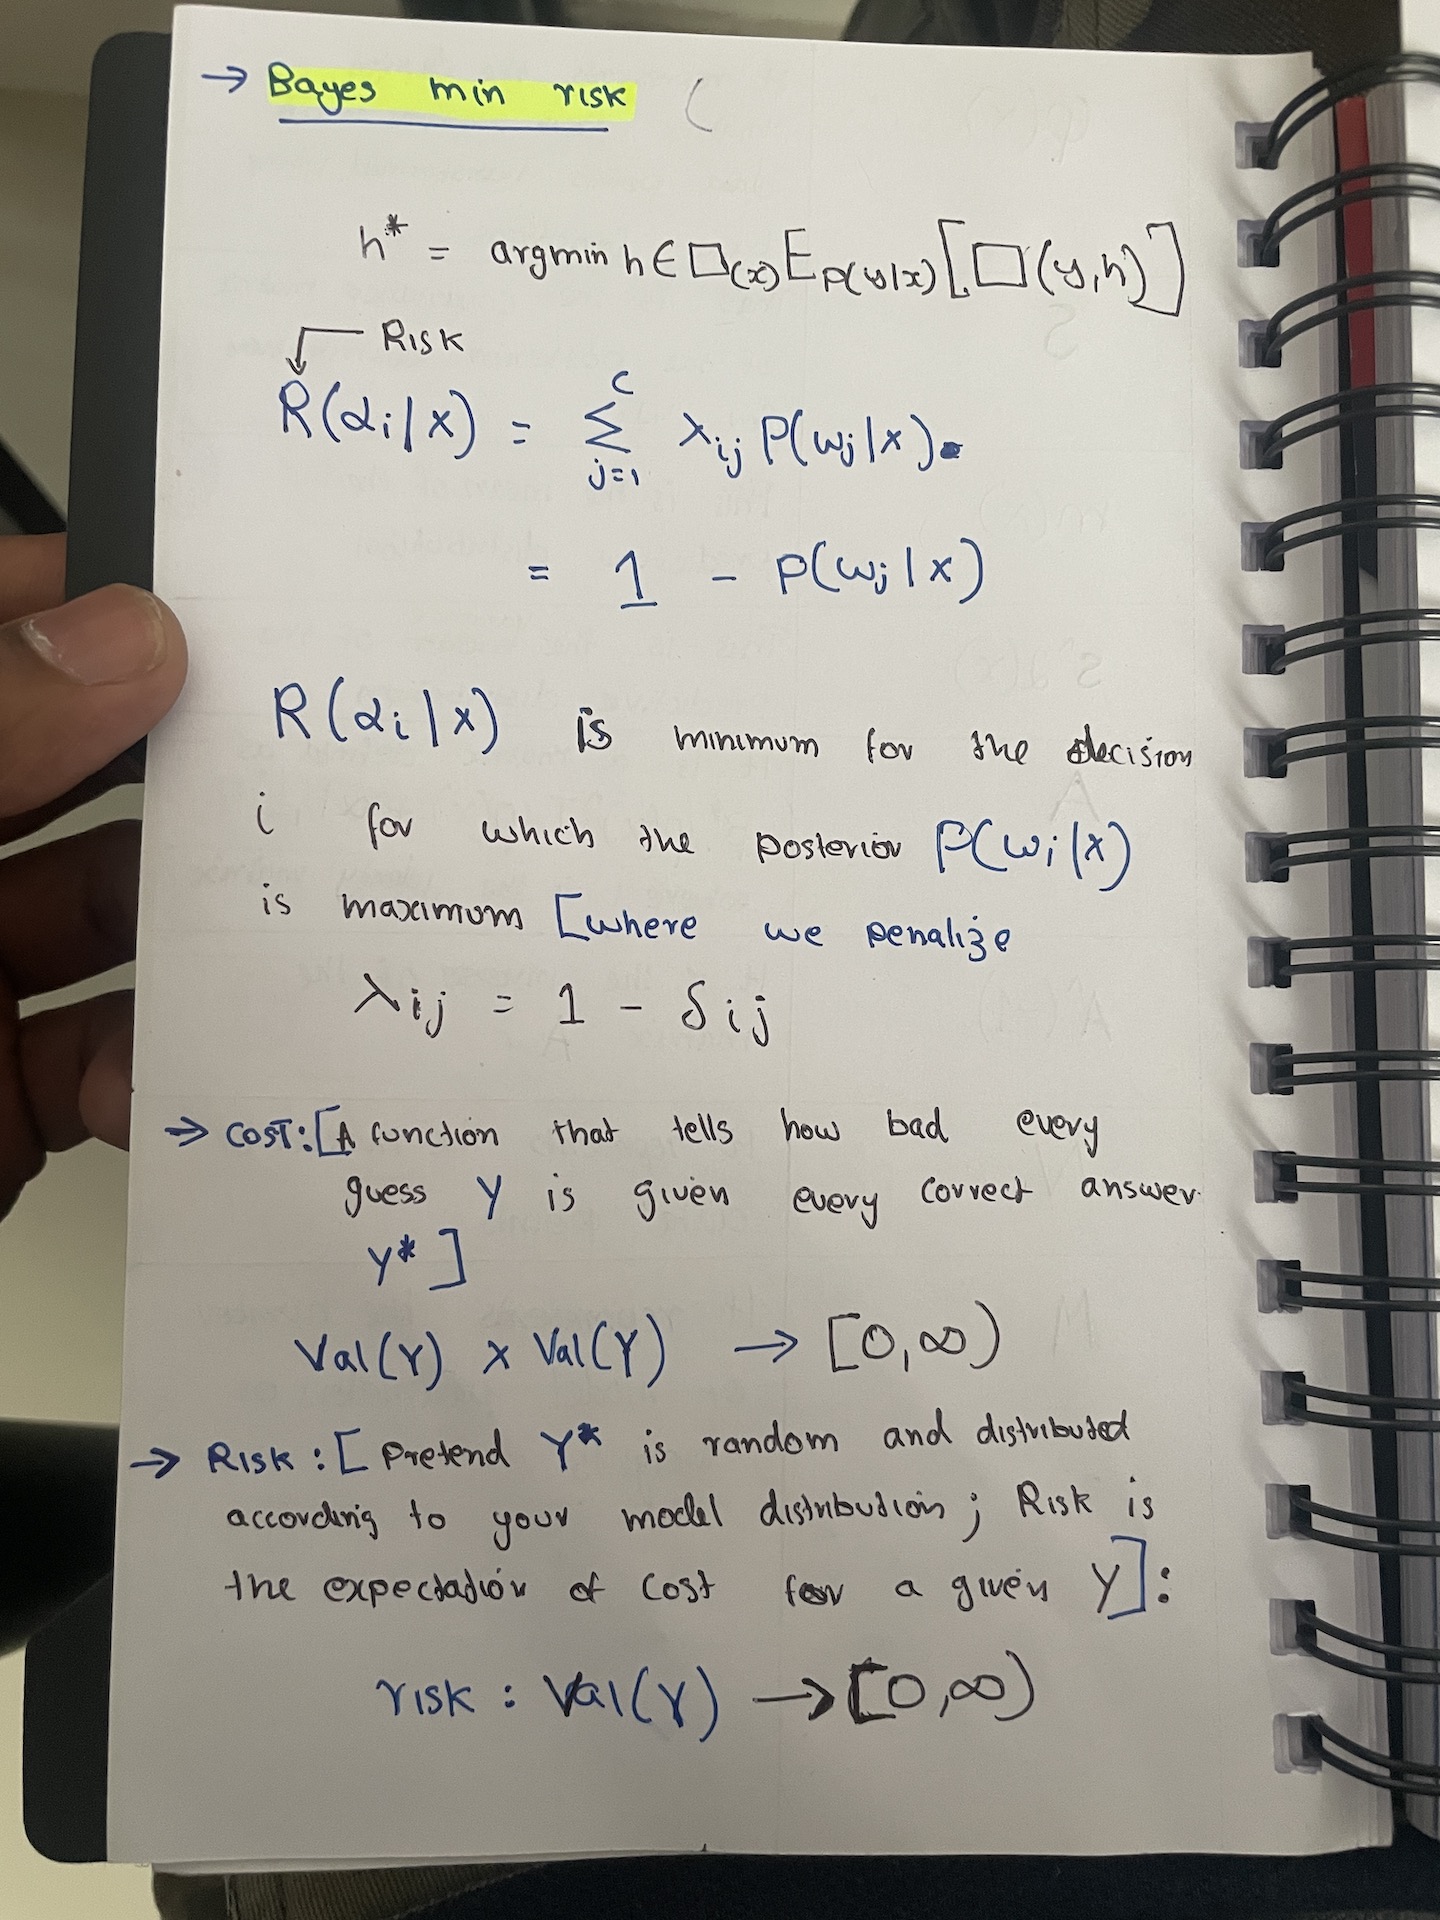 → Bayes min risk (
h* = argmin h ∈ □(x) E P(y|x) [□(y,h)]
Risk
R(αi|x) = Σ j=1 c λij P(wj|x).
= 1 - P(wj|x)
R(αi|x) is minimum for the decision
i for which the posterior P(wi|x)
is maximum [where we penalize
λij = 1 - δij
→ COST:[A function that tells how bad every
guess Y is given every correct answer
Y*]
Val(Y) x Val(Y) → [0,∞)
→ Risk : [Pretend Y* is random and distributed
according to your model distribution ; Risk is
the expectation of cost for a given Y]:
risk : Val(Y) → [0,∞)